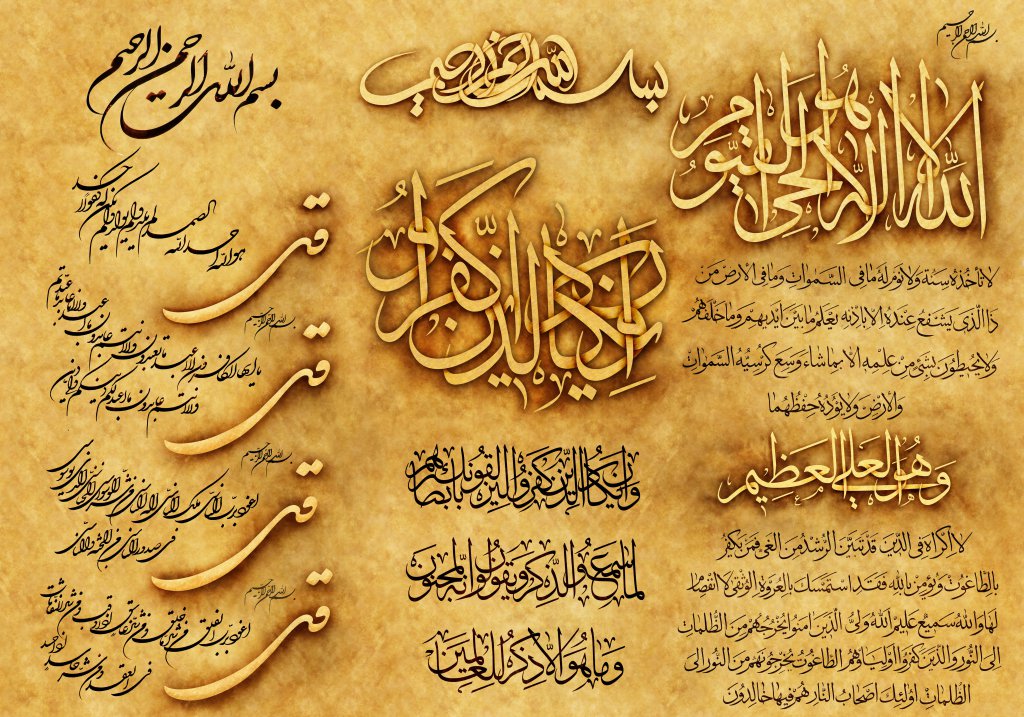 بسم الله الرحمن الرحیم
الله لا اله الا هو الحی القیوم
لا تأخذه سنة ولا نوم له ما فی السموات وما فی الارض من
ذا الذی یشفع عنده الا باذنه یعلم ما بین ایدیهم وما خلفهم
ولا یحیطون بشیء من علمه الا بما شاء وسع کرسیه السموات
والارض ولا یؤده حفظهما
وهو العلی العظیم
لا اکراه فی الدین قد تبین الرشد من الغی فمن یکفر
بالطاغوت ویؤمن بالله فقد استمسک بالعروة الوثقی لا انفصام
لها والله سمیع علیم الله ولی الذین آمنوا یخرجهم من الظلمات
الی النور والذین کفروا اولیاؤهم الطاغوت یخرجونهم من النور الی
الظلمات اولئک اصحاب النار هم فیها خالدون
بسم الله الرحمن الرحیم
وان یکاد الذین کفروا
وان یکاد الذین کفروا لیزلقونک بابصارهم
لما سمعوا الذکر ویقولون انه لمجنون
وما هو الا ذکر للعالمین
بسم الله الرحمن الرحیم
قل
هو الله احد الله الصمد لم یلد ولم یولد ولم یکن له کفوا احد
بسم الله الرحمن الرحیم
قل
یا ایها الکافرون لا اعبد ما تعبدون ولا انتم عابدون ما اعبد ولا انا عابد ما عبدتم
ولا انتم عابدون ما اعبد لکم دینکم ولی دین
بسم الله الرحمن الرحیم
قل
اعوذ برب الناس ملک الناس اله الناس من شر الوسواس الخناس الذی یوسوس
فی صدور الناس من الجنة والناس
بسم الله الرحمن الرحیم
قل
اعوذ برب الفلق من شر ما خلق ومن شر غاسق اذا وقب ومن شر النفاثات
فی العقد ومن شر حاسد اذا حسد